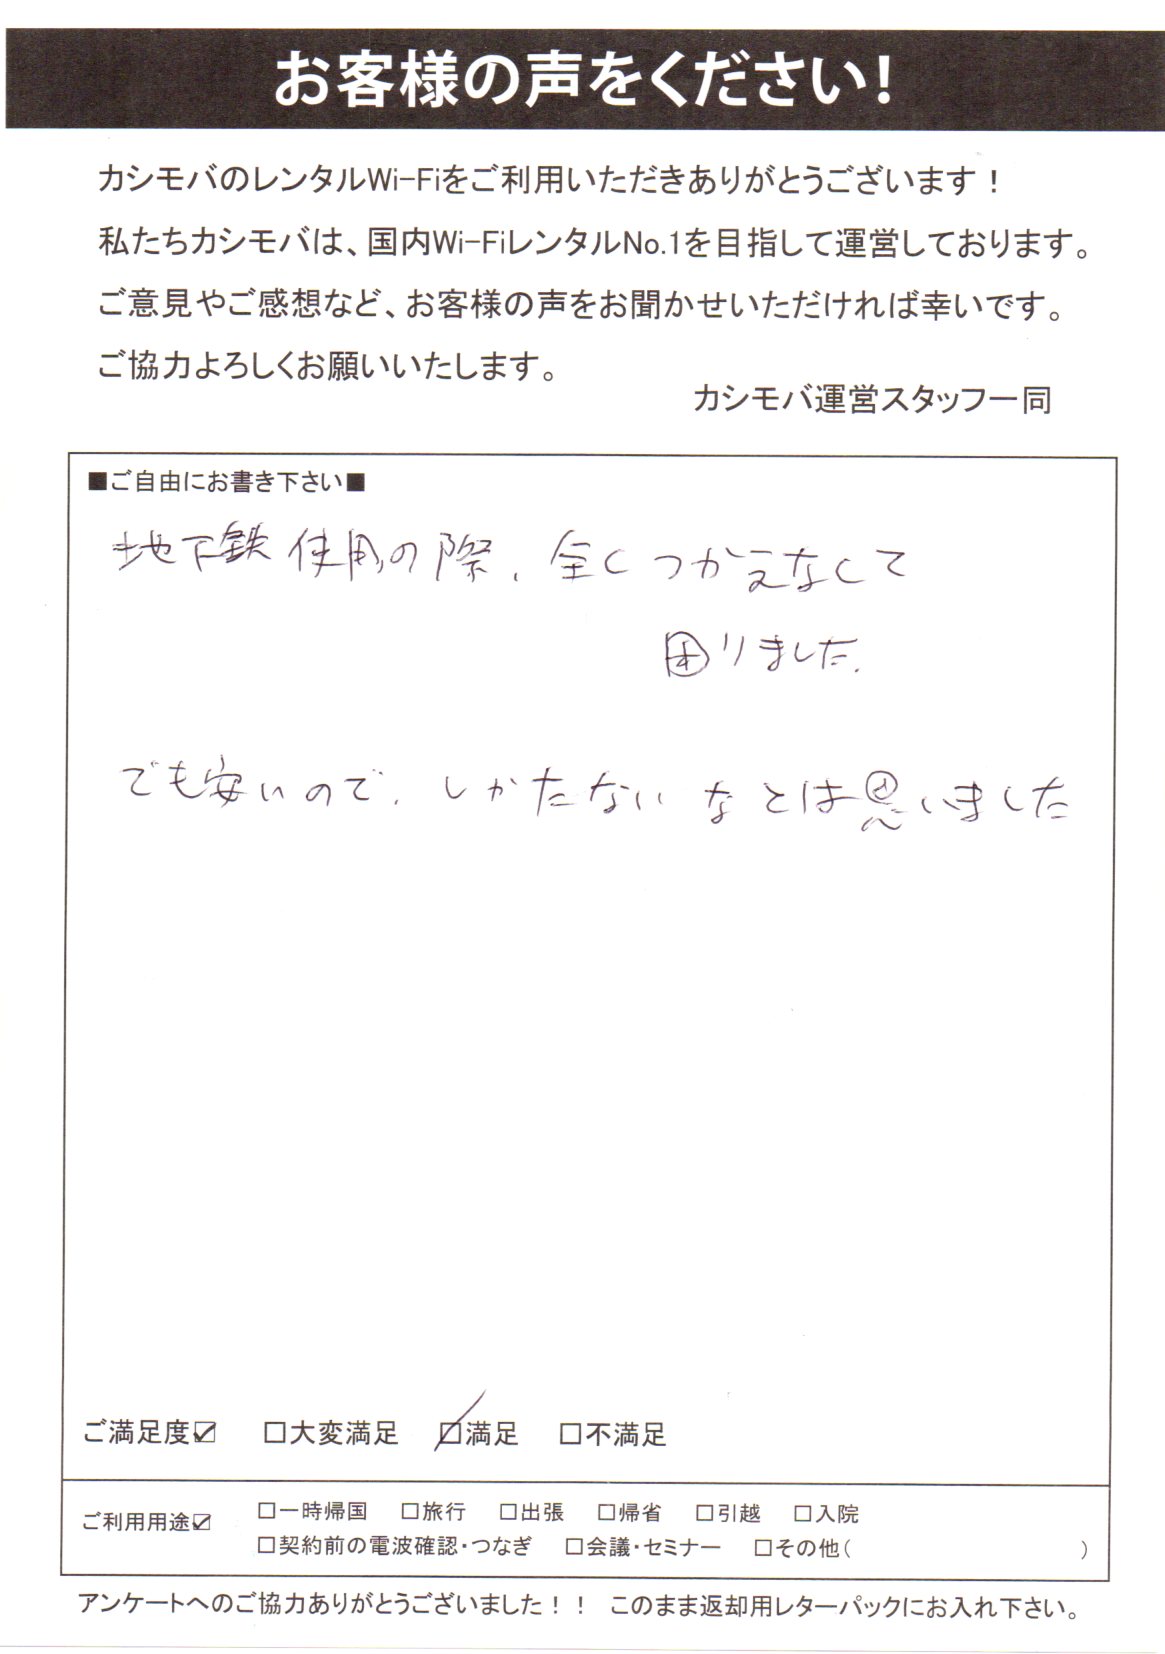 お客様の声をください!
カシモバのレンタルWi-Fiをご利用いただきありがとうございます！
私たちカシモバは、国内Wi-FiレンタルNo.1を目指して運営しております。
ご意見やご感想など、お客様の声をお聞かせいただければ幸いです。
ご協力よろしくお願いいたします。
カシモバ運営スタッフ一同
■ご自由にお書き下さい■
地下鉄使用の際、全くつかえなくて
困りました.
でも安いので、しかたないなとは思いました
ご満足度☑ □大変満足 ☑満足 □不満足
ご利用用途☑ □一時帰国 □旅行 □出張 □帰省 □引越 □入院
□契約前の電波確認・つなぎ □会議・セミナー □その他( )
アンケートへのご協力ありがとうございました！！ このまま返却用レターパックにお入れ下さい。